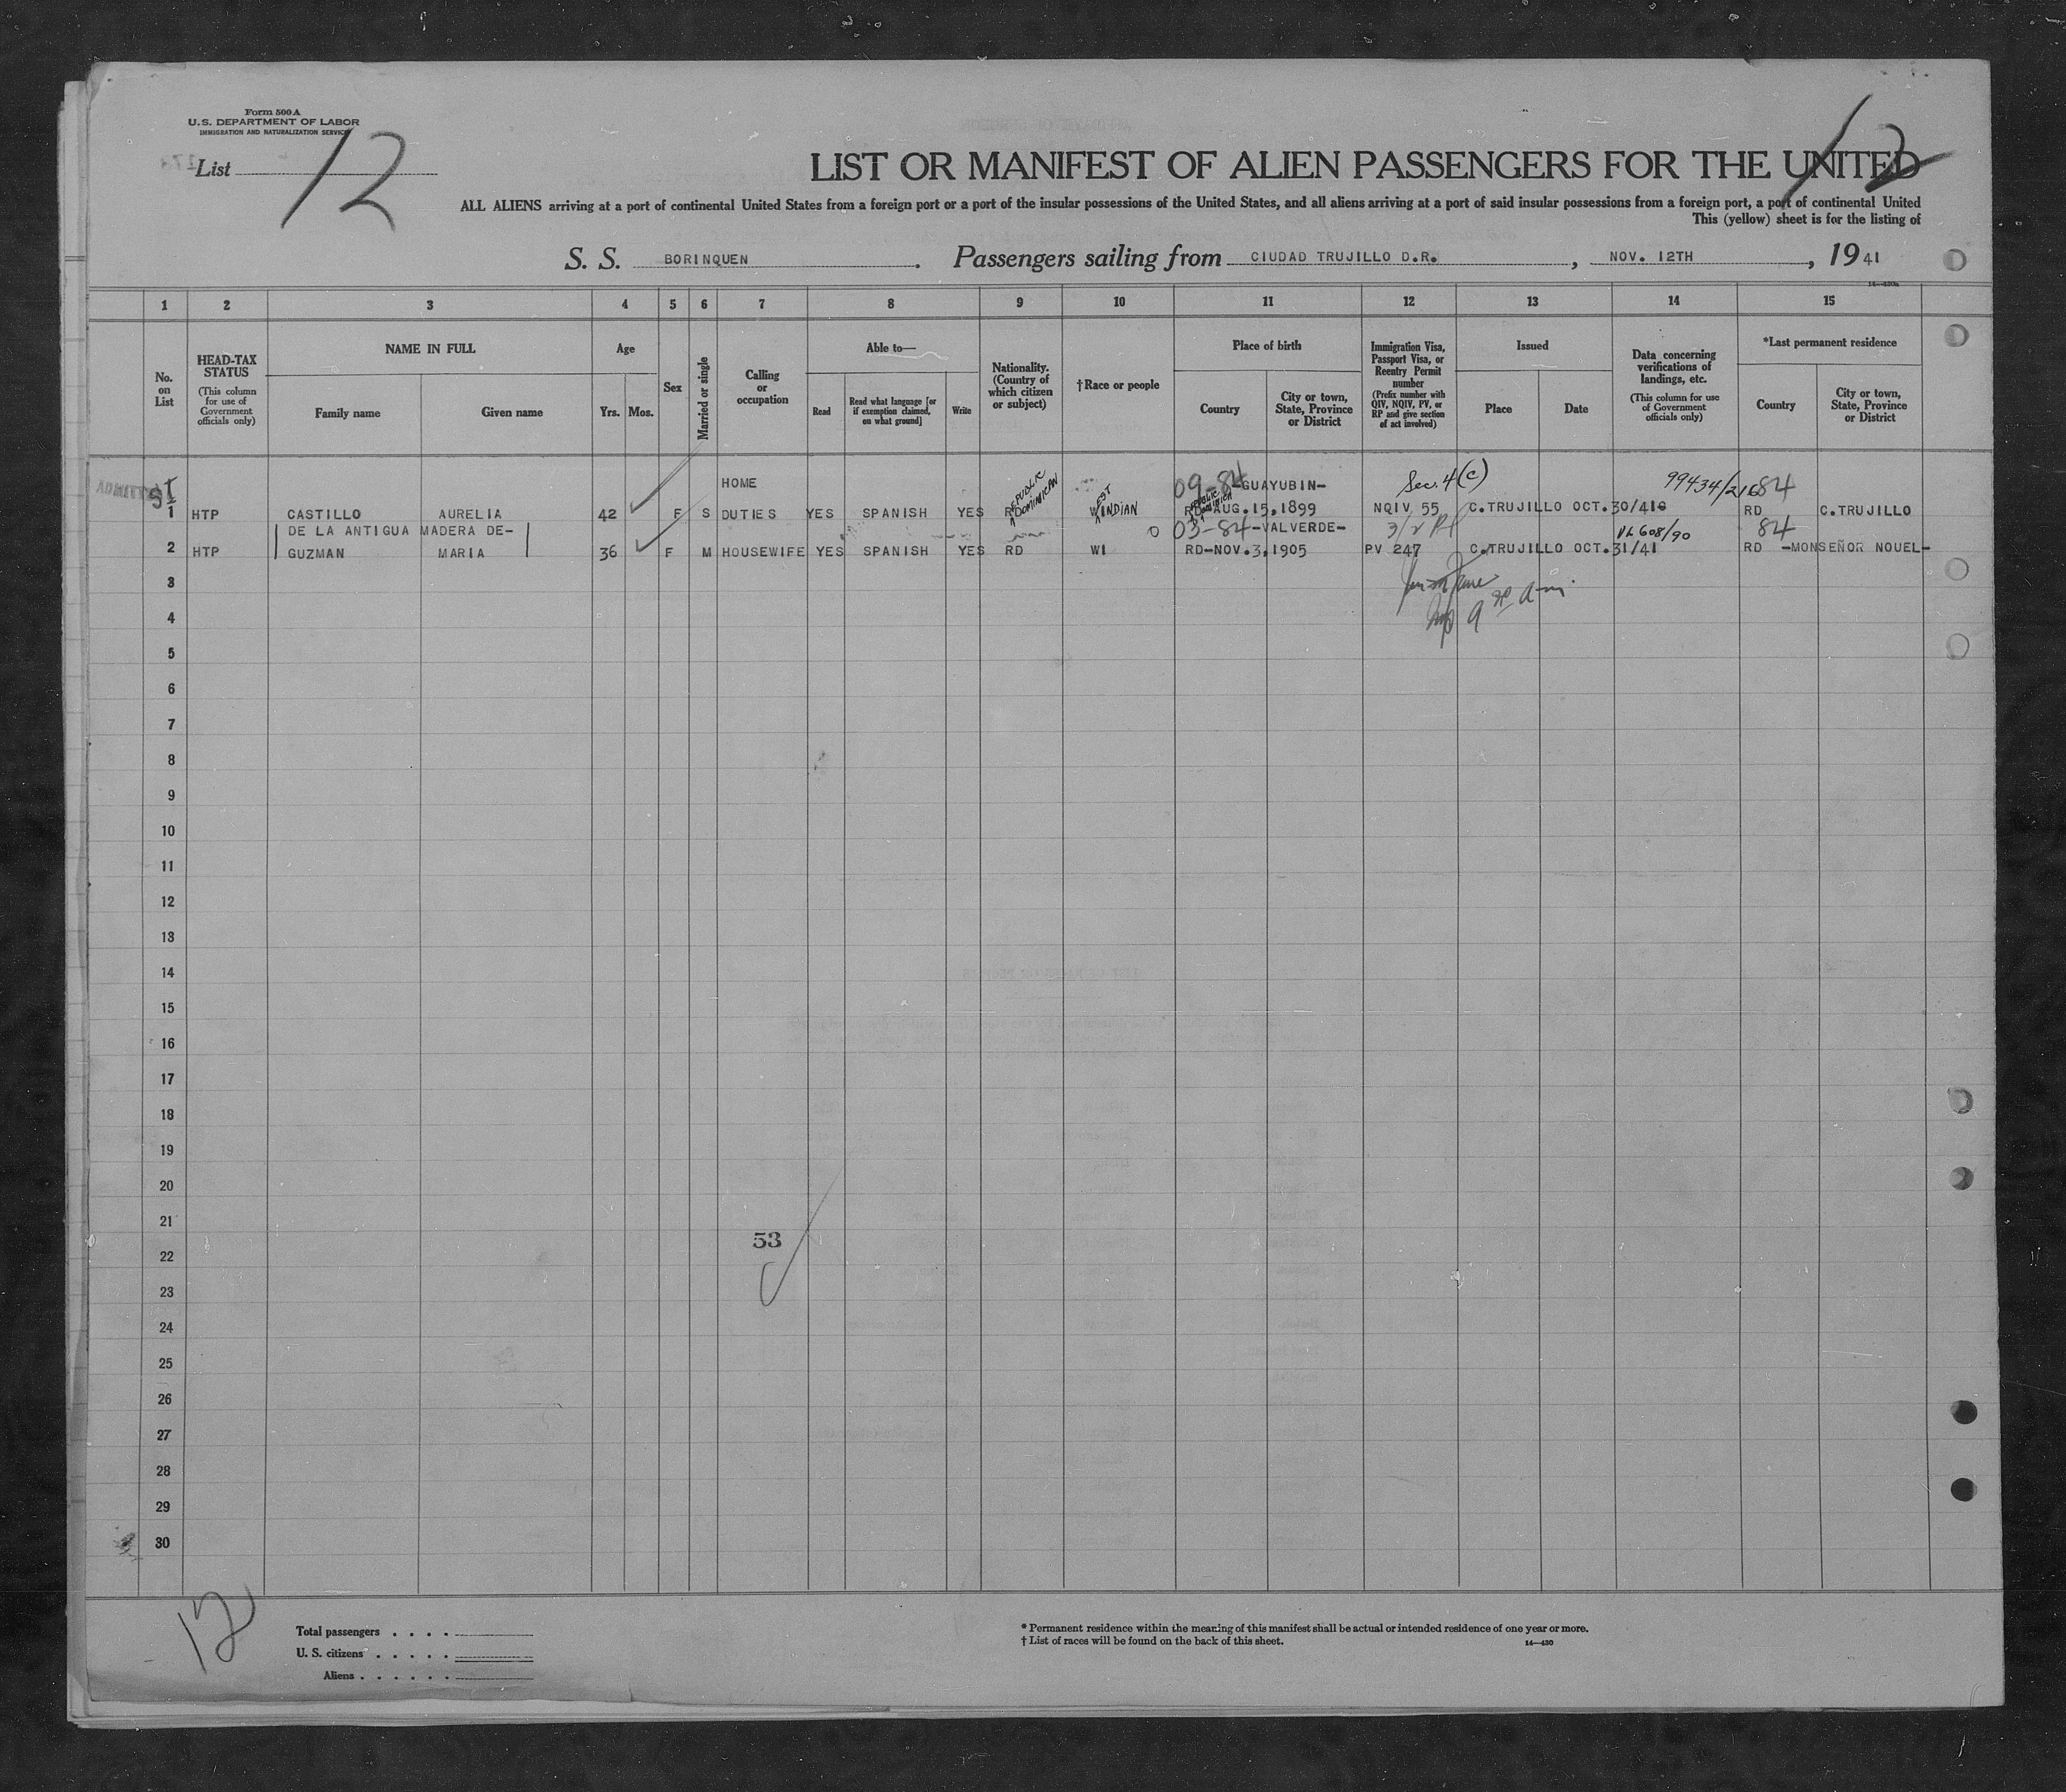 Form 500 A
U. S. DEPARTMENT OF LABOR
IMMIGRATION AND NATURALIZATION SERVICE
List 12
12
LIST OR MANIFEST OF ALIEN PASSENGERS FOR THE UNITED
ALL ALIENS arriving at a port of continental United States from a foreign port or a port of the insular possessions of the United States, and all aliens arriving at a port of said insular possessions from a foreign port, a port of continental United
This (yellow) sheet is for the listing of
S. S. BORINQUEN. Passengers sailing from CIUDAD TRUJILLO D.R., NOV. 12TH, 1941
1 2 3 4 5 6 7 8 9 10 11 12 13 14 15
No. on List
HEAD-TAX STATUS (This column for use of Government officials only)
NAME IN FULL
Family name Given name
Age
Yrs. Mos.
Sex
Married or single
Calling or occupation
Able to—
Read
Read what language [or if exemption claimed, on what ground]
Write
Nationality. (Country of which citizen or subject)
†Race or people
Place of birth
Country
City or town, State, Province or District
Immigration Visa, Passport Visa, or Reentry Permit number (Prefix number with QIV, NQIV, PV, or RP and give section of act involved)
Issued
Place Date
Data concerning verifications of landings, etc. (This column for use of Government officials only)
*Last permanent residence
Country
City or town, State, Province or District
HOME 09-84 -GUAYUBIN- Sec. 4(c) 99434/216 84
1 HTP CASTILLO AURELIA 42 F S DUTIES YES SPANISH YES RD REPUBLIC DOMINICAN WEST INDIAN RD AUG.15,1899 NQIV 55 C.TRUJILLO OCT.30/41 RD C.TRUJILLO
DE LA ANTIGUA MADERA DE- 03-84 -VALVERDE- 3/2 608/90 84
2 HTP GUZMAN MARIA 36 F M HOUSEWIFE YES SPANISH YES RD WI RD-NOV.3,1905 PV 247 C.TRUJILLO OCT.31/41 RD -MONSEÑOR NOUEL-
3
4
5
6
7
8
9
10
11
12
13
14
15
16
17
18
19
20
21
53
22
23
24
25
26
27
28
29
30
12
Total passengers
U. S. citizens
Aliens
* Permanent residence within the meaning of this manifest shall be actual or intended residence of one year or more.
† List of races will be found on the back of this sheet. 14—430